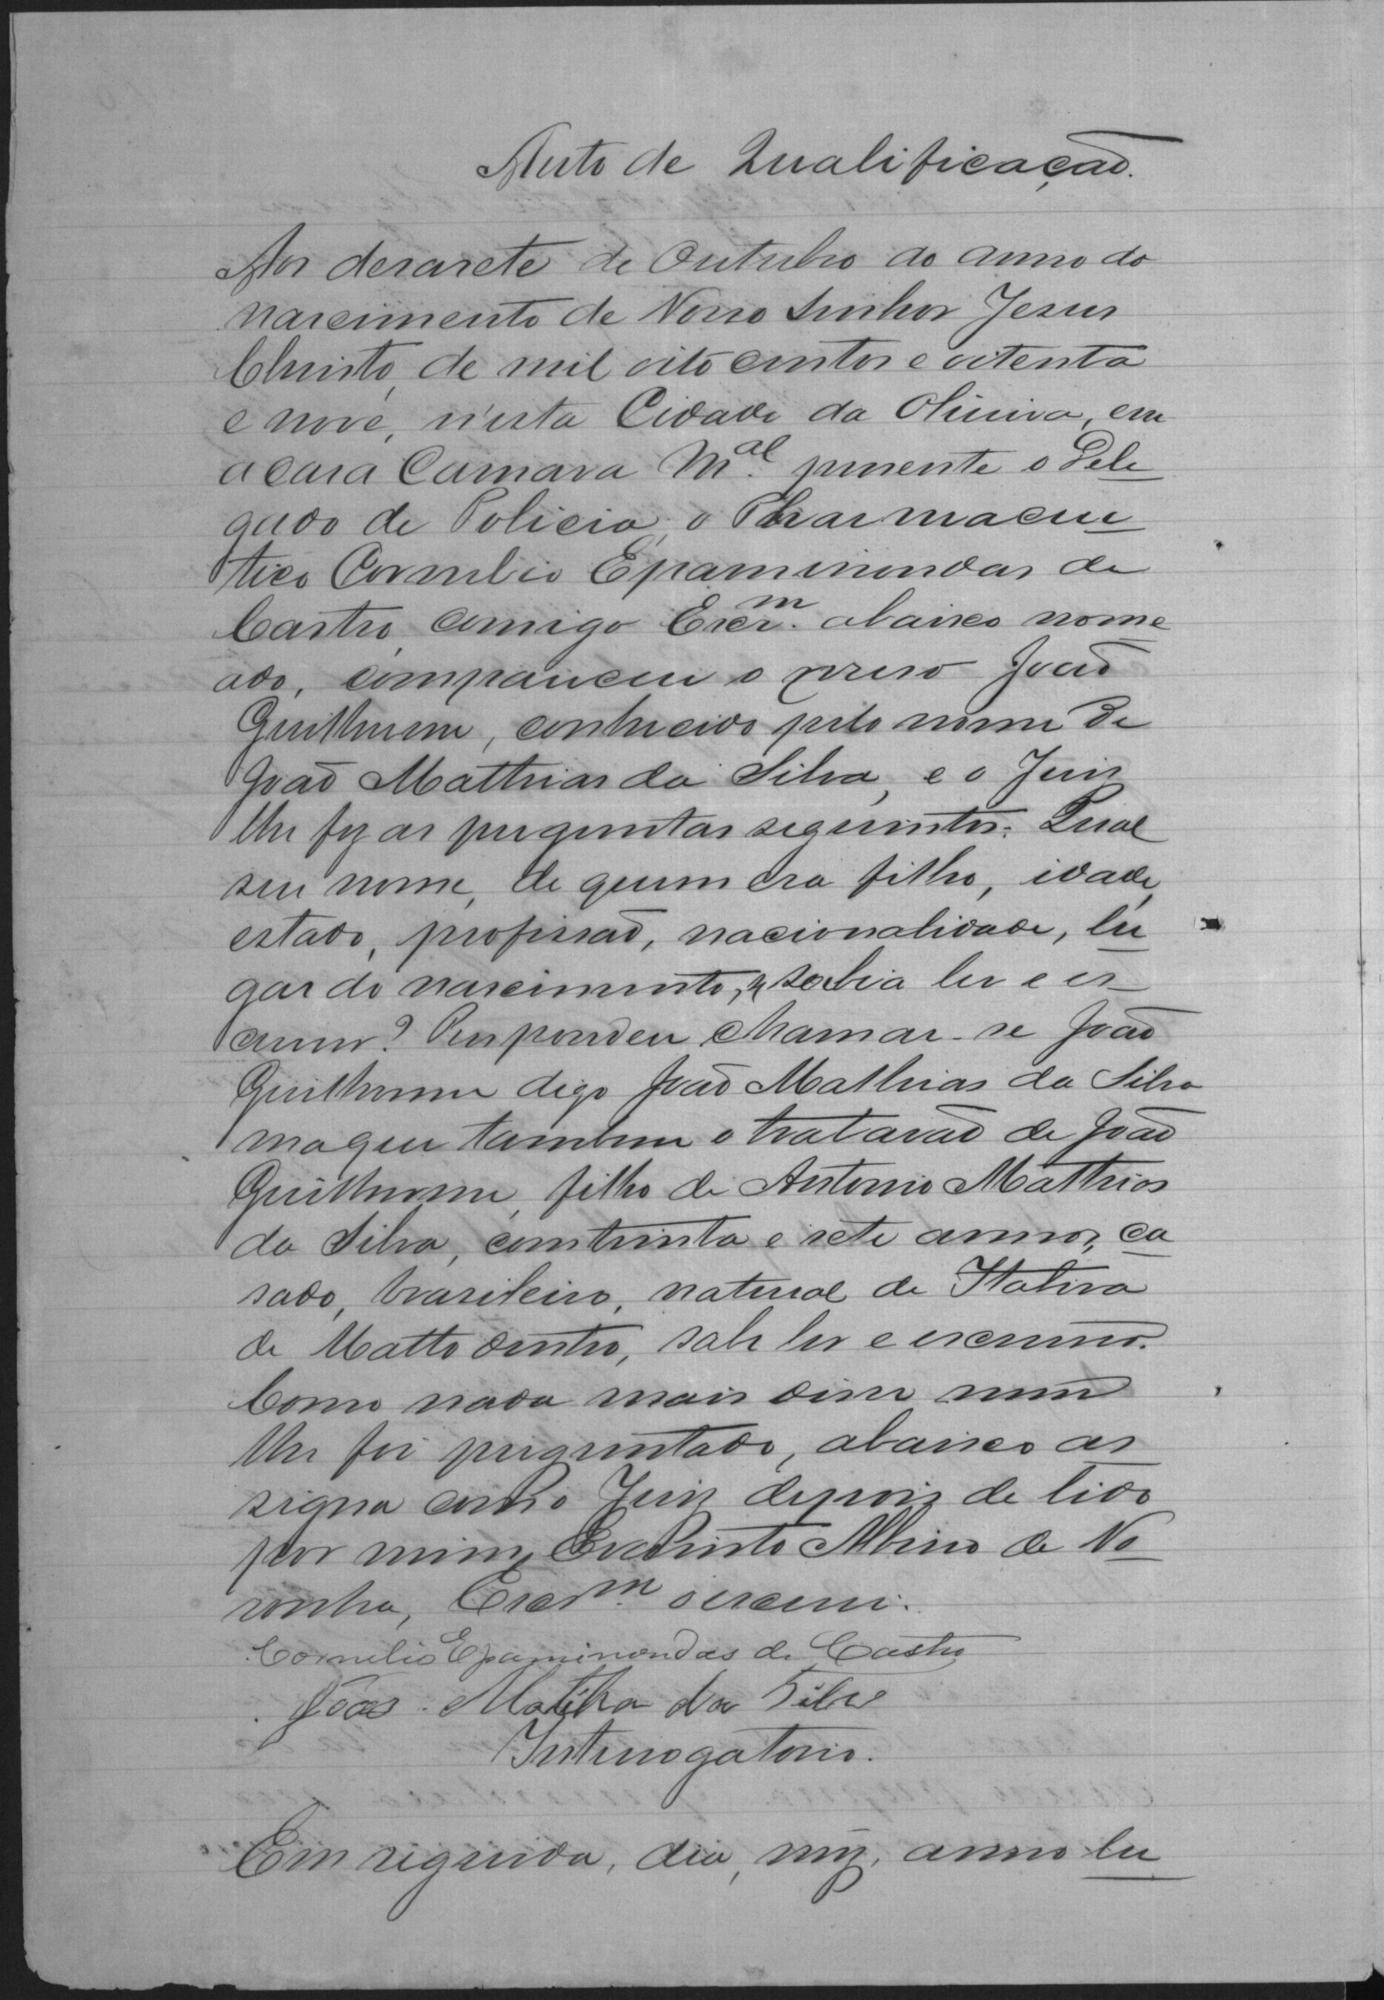 Auto de Qualificação.
Aos desasete de Outubro do anno do
nascimento de Nosso Senhor Jesus
Christo, de mil oito centos e oitenta
e nove, n'esta Cidade da Oliveira, em
a casa Camara M.al presente o Dele
gado de Policia, o Pharmaceu
tico Cornelio Epaminondas de
Castro, comigo Escr.m abaixo nome
ado, compareceu o preso João
Guilherme, conhecido pelo nome de
João Mathias da Silva, e o Juiz
lhe fez as perguntas seguintes: Qual
seu nome, de quem era filho, idade,
estado, profissão, nacionalidade, lu
gar do nascimento, e sabia ler e es
crever? Respondeu chamar-se João
Guilherme digo João Mathias da Silva
maque tambem o tratavão de João
Guilherme, filho de Antonio Mathias
da Silva, com trinta e sete annos, ca
sado, brasileiro, natural de Itabira
de Matto dentro, sabe ler e escrever.
Como nada mais disse nem
lhe foi perguntado, abaixo as
signa com o Juiz depois de lido
por mim, Evaristo Albino de No
ronha, Escr.m o escrevi.
Cornelio Epaminondas de Castro
João Mathia da Silva
Interrogatorio.
Em seguida, dia, mez, anno lu